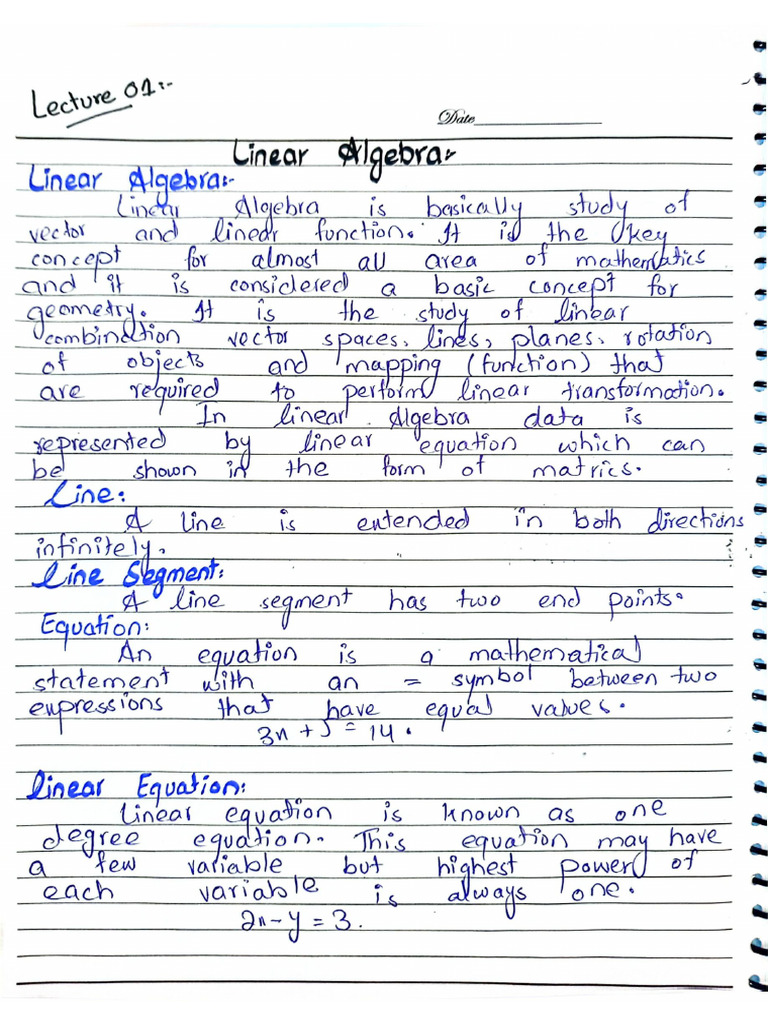 Lecture 01:-
Date
Linear Algebra:-
Linear Algebra:-
Linear Algebra is basically study of
vector and linear function. It is the key
concept for almost all area of mathematics
and it is considered a basic concept for
geometry. It is the study of linear
combination vector spaces, lines, planes, rotation
of objects and mapping (function) that
are required to perform linear transformation.
In linear Algebra data is
represented by linear equation which can
be shown in the form of matrics.
Line:
A line is extended in both directions
infinitely.
Line Segment:
A line segment has two end points.
Equation:
An equation is a mathematical
statement with an = symbol between two
expressions that have equal values.
3x + 5 = 14.
Linear Equation:
Linear equation is known as one
degree equation. This equation may have
a few variable but highest power of
each variable is always one.
2x - y = 3.